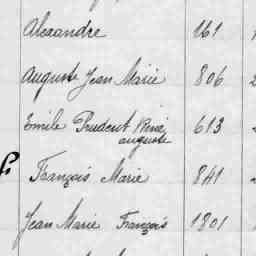 Alexandre 161
Auguste Jean Marie 806
Emile Prudent René 613
auguste
François Marie 841
Jean Marie François 1801